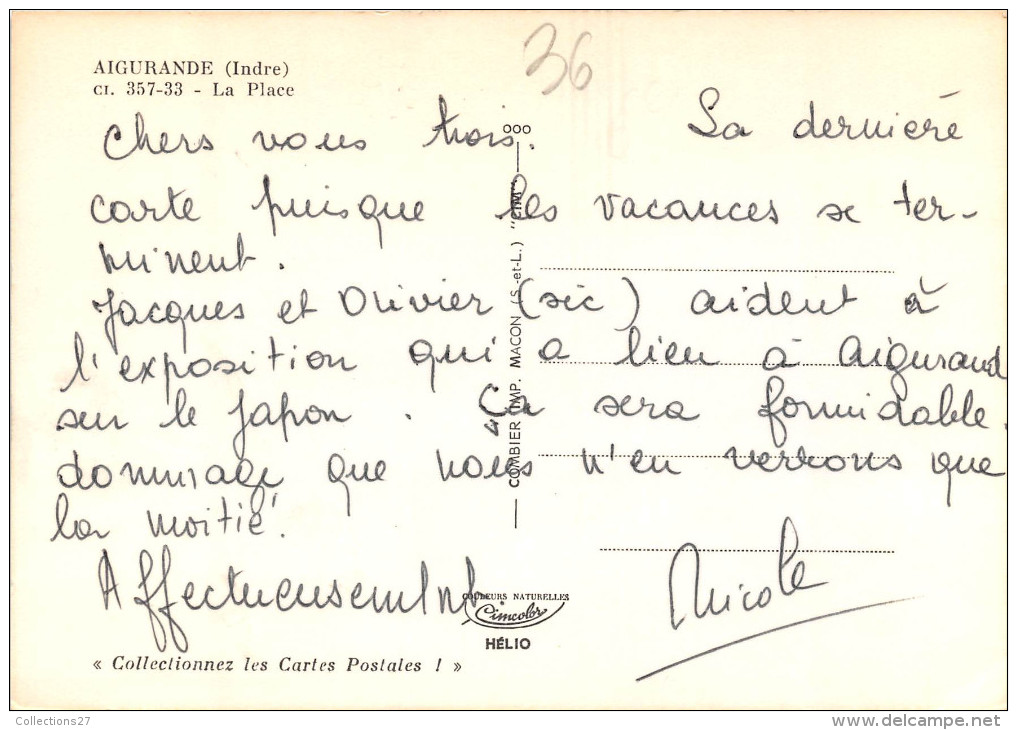 36
AIGURANDE (Indre)
CI. 357-33 - La Place
Chers vous trois. La dernière
carte puisque les vacances se ter-
minent.
Jacques et Olivier (sic) aident à
l'exposition qui a lieu à Aigurand
sur le Japon. Ça sera formidable.
dommage que nous n'en verrons que
la moitié.
Affectueusement
Nicole
COMBIER IMP. MACON (S.-et-L.) "CIM"
COULEURS NATURELLES
Cimcolor
HÉLIO
« Collectionnez les Cartes Postales ! »
Collections27
www.delcampe.net